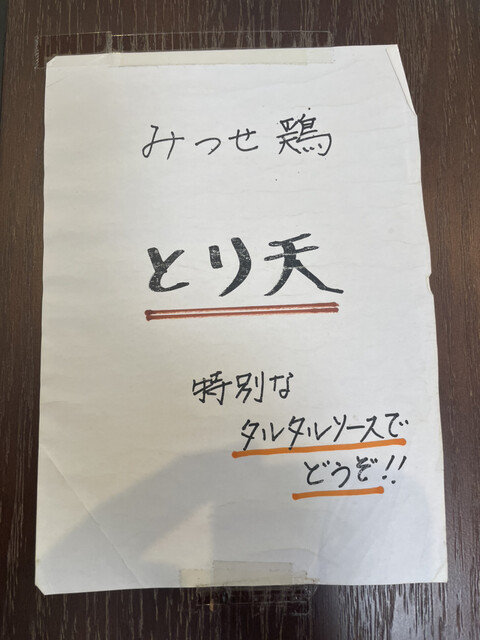 みつせ鶏
とり天
特別な
タルタルソースで
どうぞ!!